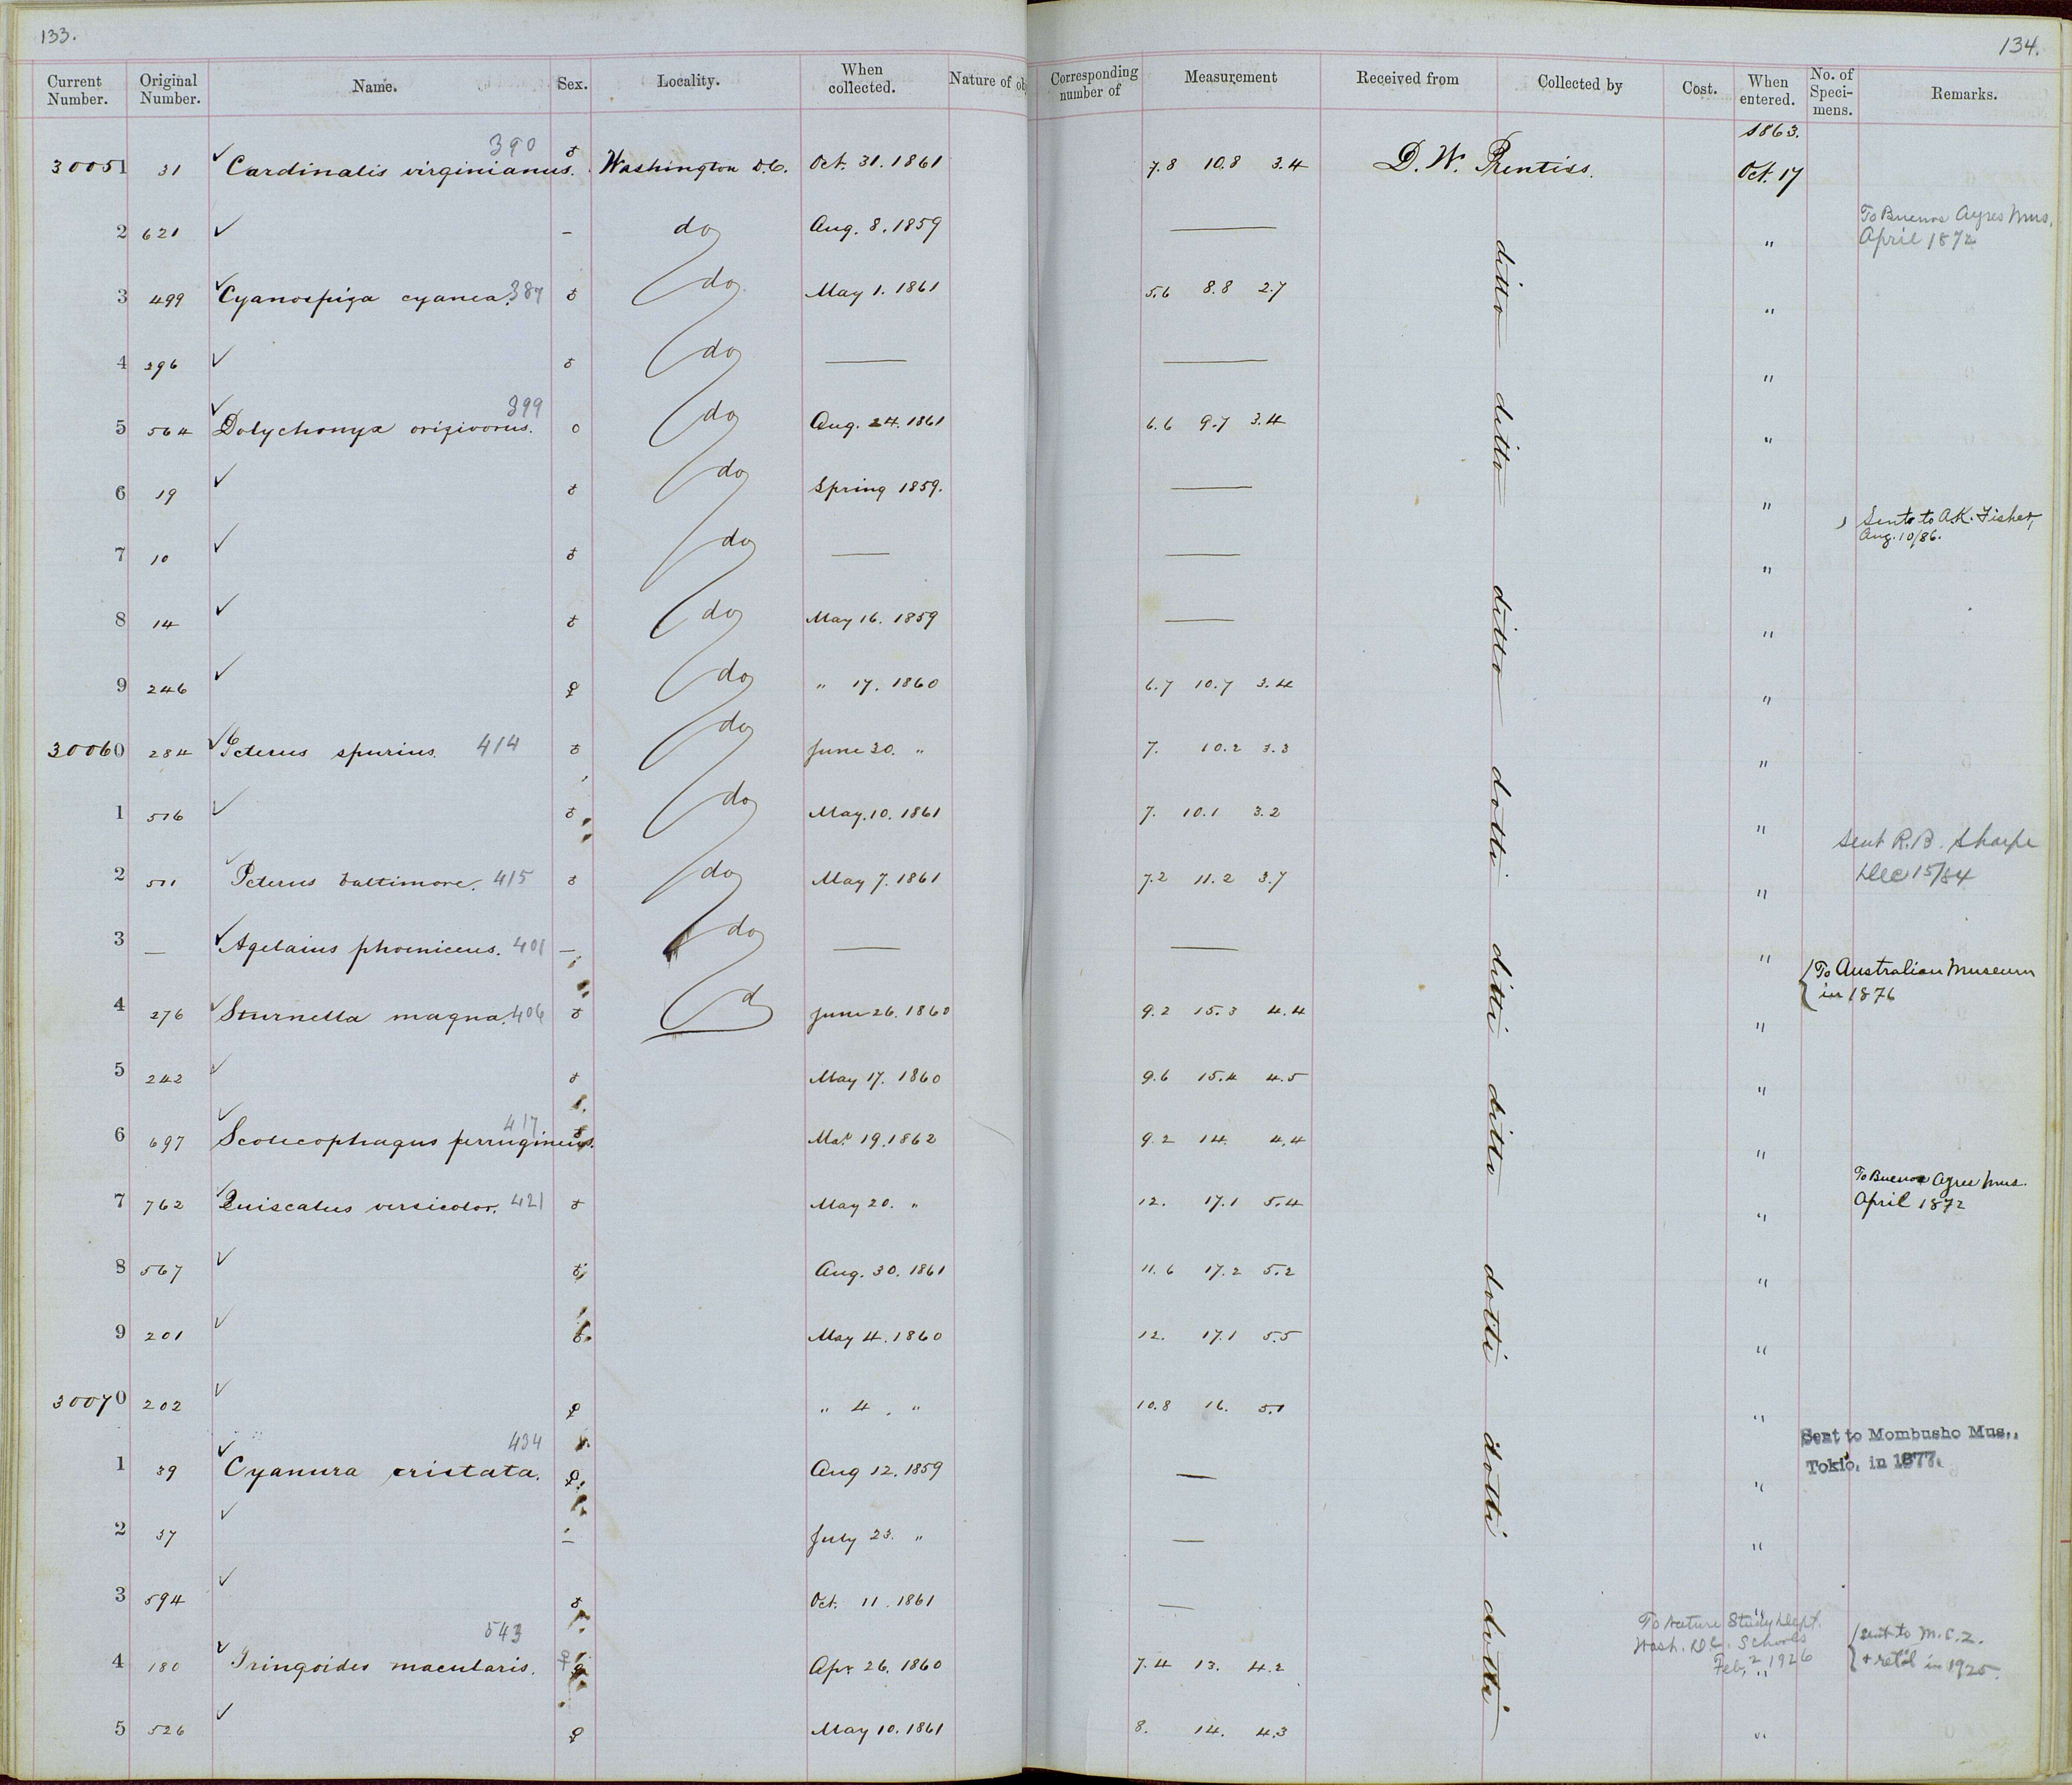 133.
134.
Current Number. Original Number. Name. Sex. Locality. When collected. Nature of ob Corresponding number of Measurement Received from Collected by Cost. When entered. No. of Speci-mens. Remarks.
1863.
30051 31 ✓ Cardinalis virginianus. 390 ♂ Washington D.C. Oct. 31. 1861 7.8 10.8 3.4 D. W. Prentiss. Oct. 17
2 621 ✓ — do Aug. 8. 1859 — ditto " To Buenos Ayres Mus. April 1872
3 499 ✓ Cyanospiza cyanea. 387 ♂ do May 1. 1861 5.6 8.8 2.7 "
4 296 ✓ ♂ do — — ditto "
5 564 ✓ Dolychonyx orizivorus. 399 ○ do Aug. 24. 1861 6.6 9.7 3.4 "
6 19 ✓ ♂ do Spring 1859. — "
7 10 ✓ ♂ do — — " Sent to A.K. Fisher, Aug. 10/86.
8 14 ✓ ♂ do May 16. 1859 — ditto "
9 246 ✓ ♀ do " 17. 1860 6.7 10.7 3.4 "
30060 284 ✓ Icterus spurius. 414 ♂ do June 20. " 7. 10.2 3.3 ditto "
1 516 ✓ ♂ do May. 10. 1861 7. 10.1 3.2 "
2 511 ✓ Icterus baltimore. 415 ♂ do May 7. 1861 7.2 11.2 3.7 " Sent R.B. Sharpe Dec 15/84
3 — ✓ Agelaius phoeniceus. 401 — do — — ditto "
4 276 ✓ Sturnella magna. 406 ♂ d June 26. 1860 9.2 15.3 4.4 " To Australian Museum in 1876
5 242 ✓ ♂ May 17. 1860 9.6 15.4 4.5 ditto "
6 697 ✓ Scolecophagus ferrugineus. 417 ♂ Mar. 19. 1862 9.2 14. 4.4 "
7 762 ✓ Quiscalus versicolor. 421 ♂ May 20. " 12. 17.1 5.4 " To Buenos Ayres Mus. April 1872
8 567 ✓ ♂ Aug. 30. 1861 11.6 17.2 5.2 ditto "
9 201 ✓ ♂ May 4. 1860 12. 17.1 5.5 "
30070 202 ✓ ♀ " 4. " 10.8 16. 5.1 "
1 39 ✓ Cyanura cristata. 434 ♀ Aug 12. 1859 — ditto " Sent to Mombusho Mus., Tokio, in 1877.
2 37 ✓ — July 23. " — "
3 594 ✓ ♂ Oct. 11. 1861 — ditto "
4 180 ✓ Tringoides macularis. 543 ♀ Apr 26. 1860 7.4 13. 4.2 " To Nature Study Dept. Wash. D.C. Schools Feb. 2 1926 sent to M.C.Z. + ret'd in 1925.
5 526 ✓ ♀ May 10. 1861 8. 14. 4.3 "